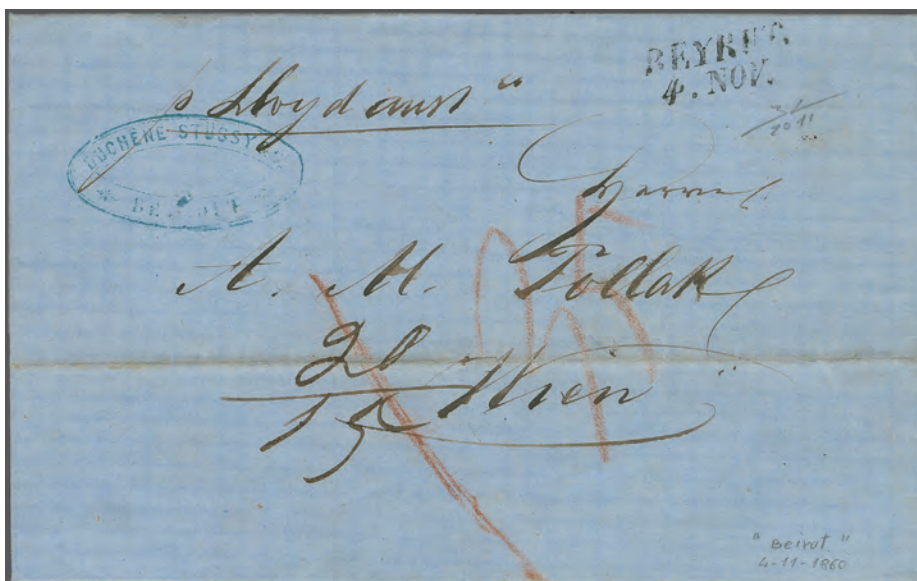 BEYRUT.
4. NOV.
p Lloyd aust"
2011
DUCHÊNE STUSSY
BEYRUT
Herrn
A. M. Pollak
20
15
Wien"
"Beirut"
4-11-1860